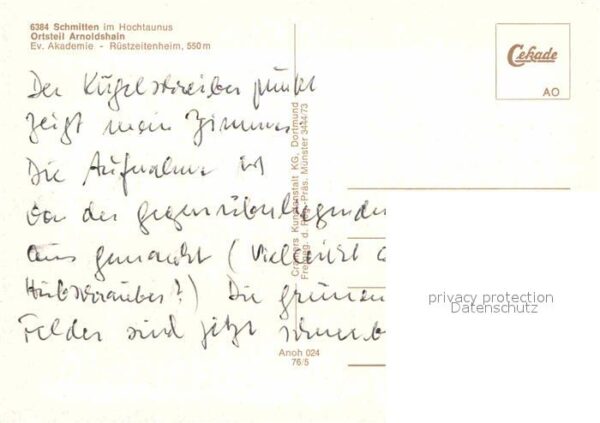 6384 Schmitten im Hochtaunus
Ortsteil Arnoldshain
Ev. Akademie - Rüstzeitenheim, 550 m
Cekade
AO
Der Kugelschreiber punkt
zeigt mein Zimmer.
Die Aufnahme ist
von der gegenüberliegenden
aus gemacht (Vielleicht
Hubschrauber?) Die grünen
Felder sind jetzt
Cramers Kunstanstalt KG, Dortmund
Freigeg. d. Reg.-Präs. Münster 3444/73
privacy protection
Datenschutz
Anoh 024
76/5